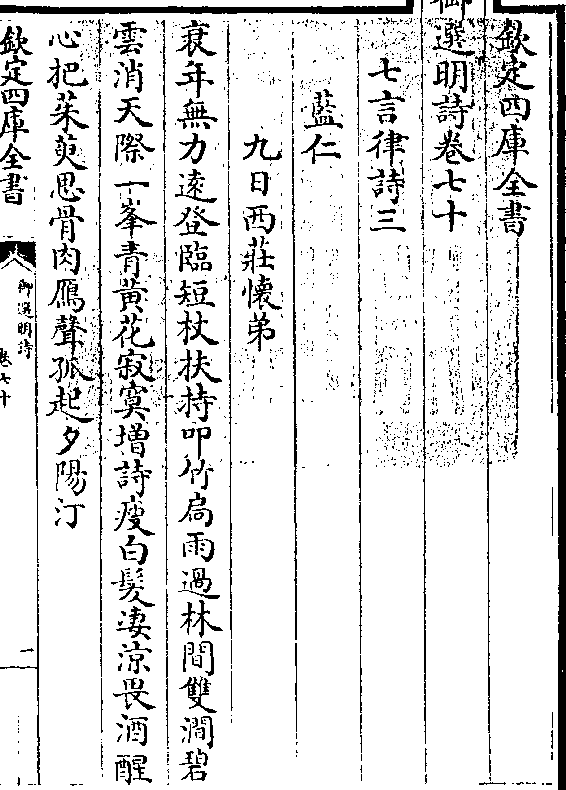 欽定四庫全書
御選明詩卷七十
七言律詩三
藍仁
九日西莊懷弟
衰年無力遠登臨短杖扶持叩竹扃雨過林間雙澗碧
雲消天際一峯青黃花寂寞增詩瘦白髮凄涼畏酒醒
心把茱萸思骨肉鴈聲孤起夕陽汀
欽定四庫全書
御選明詩
卷七十
二